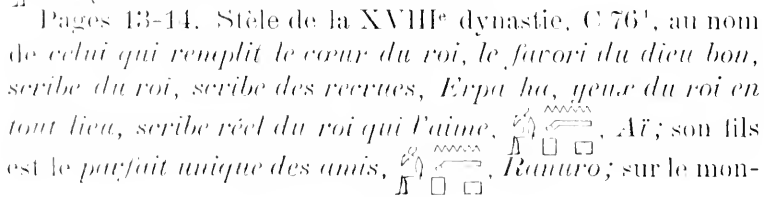 Pages 13-14. Stèle de la XVIIIe dynastie, C 76¹, au nom
de celui qui remplit le cœur du roi, le favori du dieu bon,
scribe du roi, scribe des recrues, Erpa ha, yeux du roi en
tout lieu, scribe réel du roi qui l'aime, , Aï; son fils
est le parfait unique des amis, , Ranuro; sur le mon-